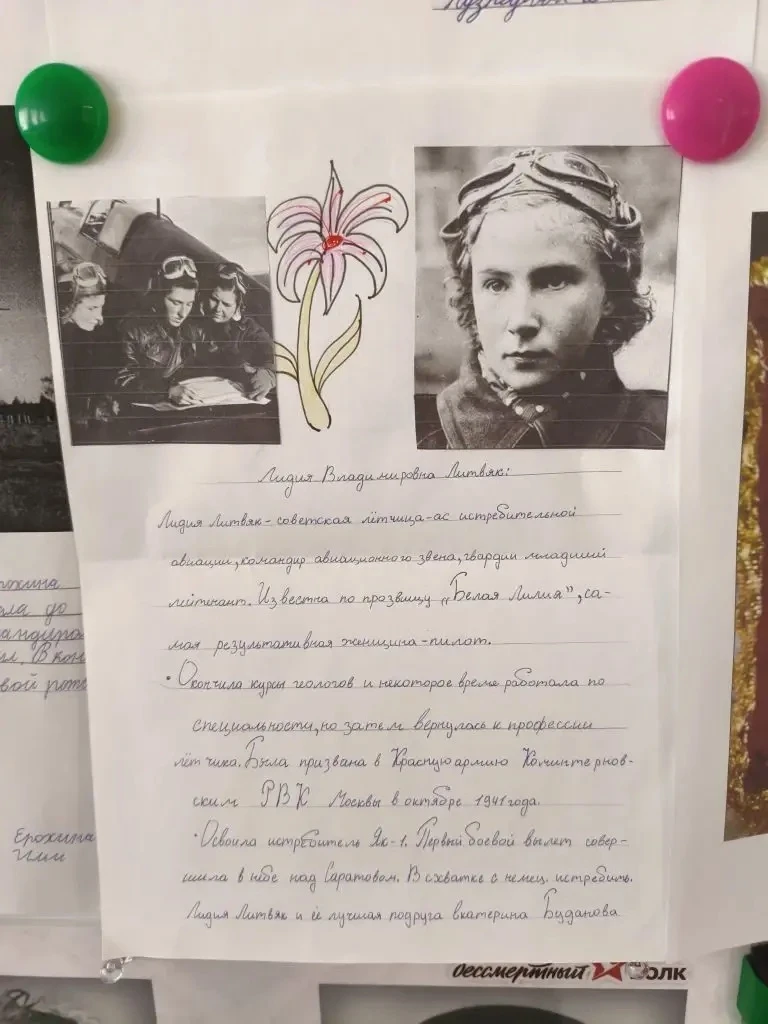 Лидия Владимировна Литвяк:
Лидия Литвяк - советская лётчица-ас истребительной
авиации, командир авиационного звена, гвардии младший
лейтенант. Известна по прозвищу „Белая Лилия”, са-
мая результативная женщина-пилот.
• Окончила курсы геологов и некоторое время работала по
специальности, но затем вернулась к профессии
лётчика. Была призвана в Красную армию Коминтернов-
ским РВК Москвы в октябре 1941 года.
• Освоила истребитель Як-1. Первый боевой вылет совер-
шила в небе над Саратовом. В схватке с немец. истребить.
Лидия Литвяк и её лучшая подруга Екатерина Буданова
ла до
вой рот
Ерохина
бессмертный полк